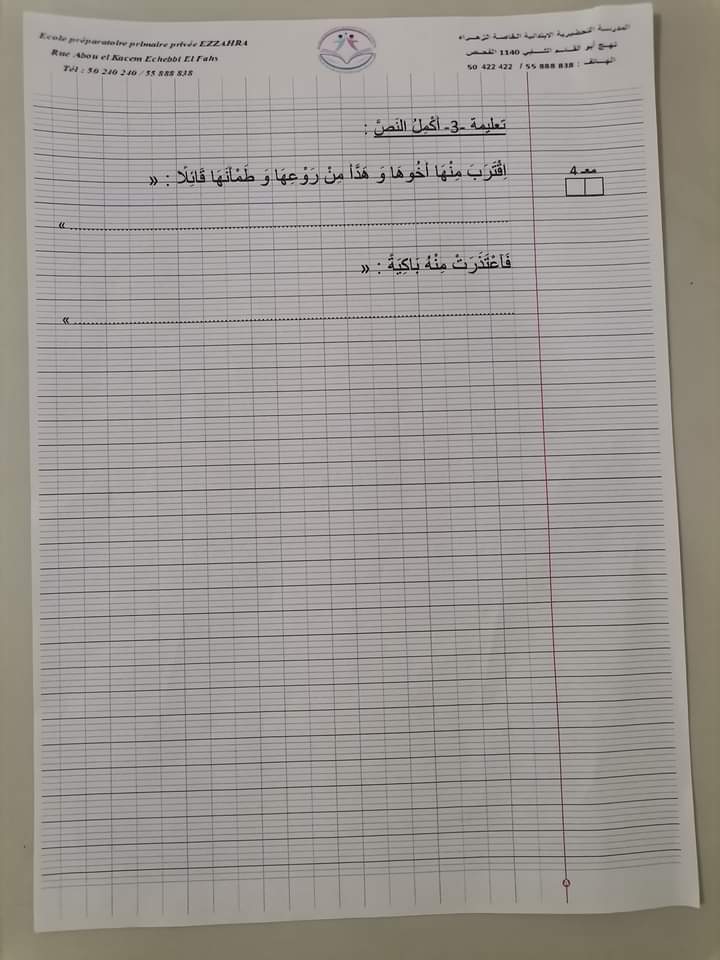 Ecole préparatoire primaire privée EZZAHRA
Rue Abou el Kacem Echebbi El Fahs
Tél : 50 240 240 / 55 888 838
المدرسة التحضيرية الابتدائية الخاصة الزهراء
نهج أبو القاسم الشابي 1140 الفحص
الهاتف : 50 422 422 / 55 888 838
تعليمة -3- أُكْمِلُ النَصَّ :
مع 4
اِقْتَرَبَ مِنْهَا أَخُوهَا وَ هَدَّأَ مِنْ رَوْعِهَا وَ طَمْأَنَهَا قَائِلًا : «
........................................ »
فَاعْتَذَرَتْ مِنْهُ بَاكِيَةً : «
........................................ »